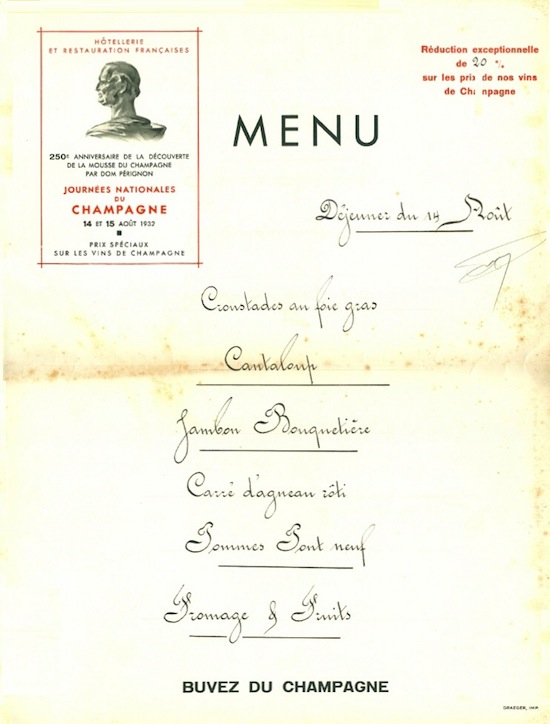 HÔTELLERIE
ET RESTAURATION FRANÇAISES
250e ANNIVERSAIRE DE LA DÉCOUVERTE
DE LA MOUSSE DU CHAMPAGNE
PAR DOM PÉRIGNON
JOURNÉES NATIONALES
DU
CHAMPAGNE
14 ET 15 AOÛT 1932
PRIX SPÉCIAUX
SUR LES VINS DE CHAMPAGNE
Réduction exceptionnelle
de 20 %
sur les prix de nos vins
de Champagne
MENU
Déjeuner du 14 Août
Croustades au foie gras
Cantaloup
Jambon Bouquetière
Carré d'agneau rôti
Pommes Pont neuf
Fromage & Fruits
BUVEZ DU CHAMPAGNE
DRAEGER, IMP.